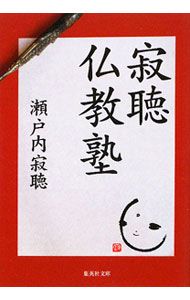 寂聴
仏教塾
瀬戸内寂聴
集英社文庫